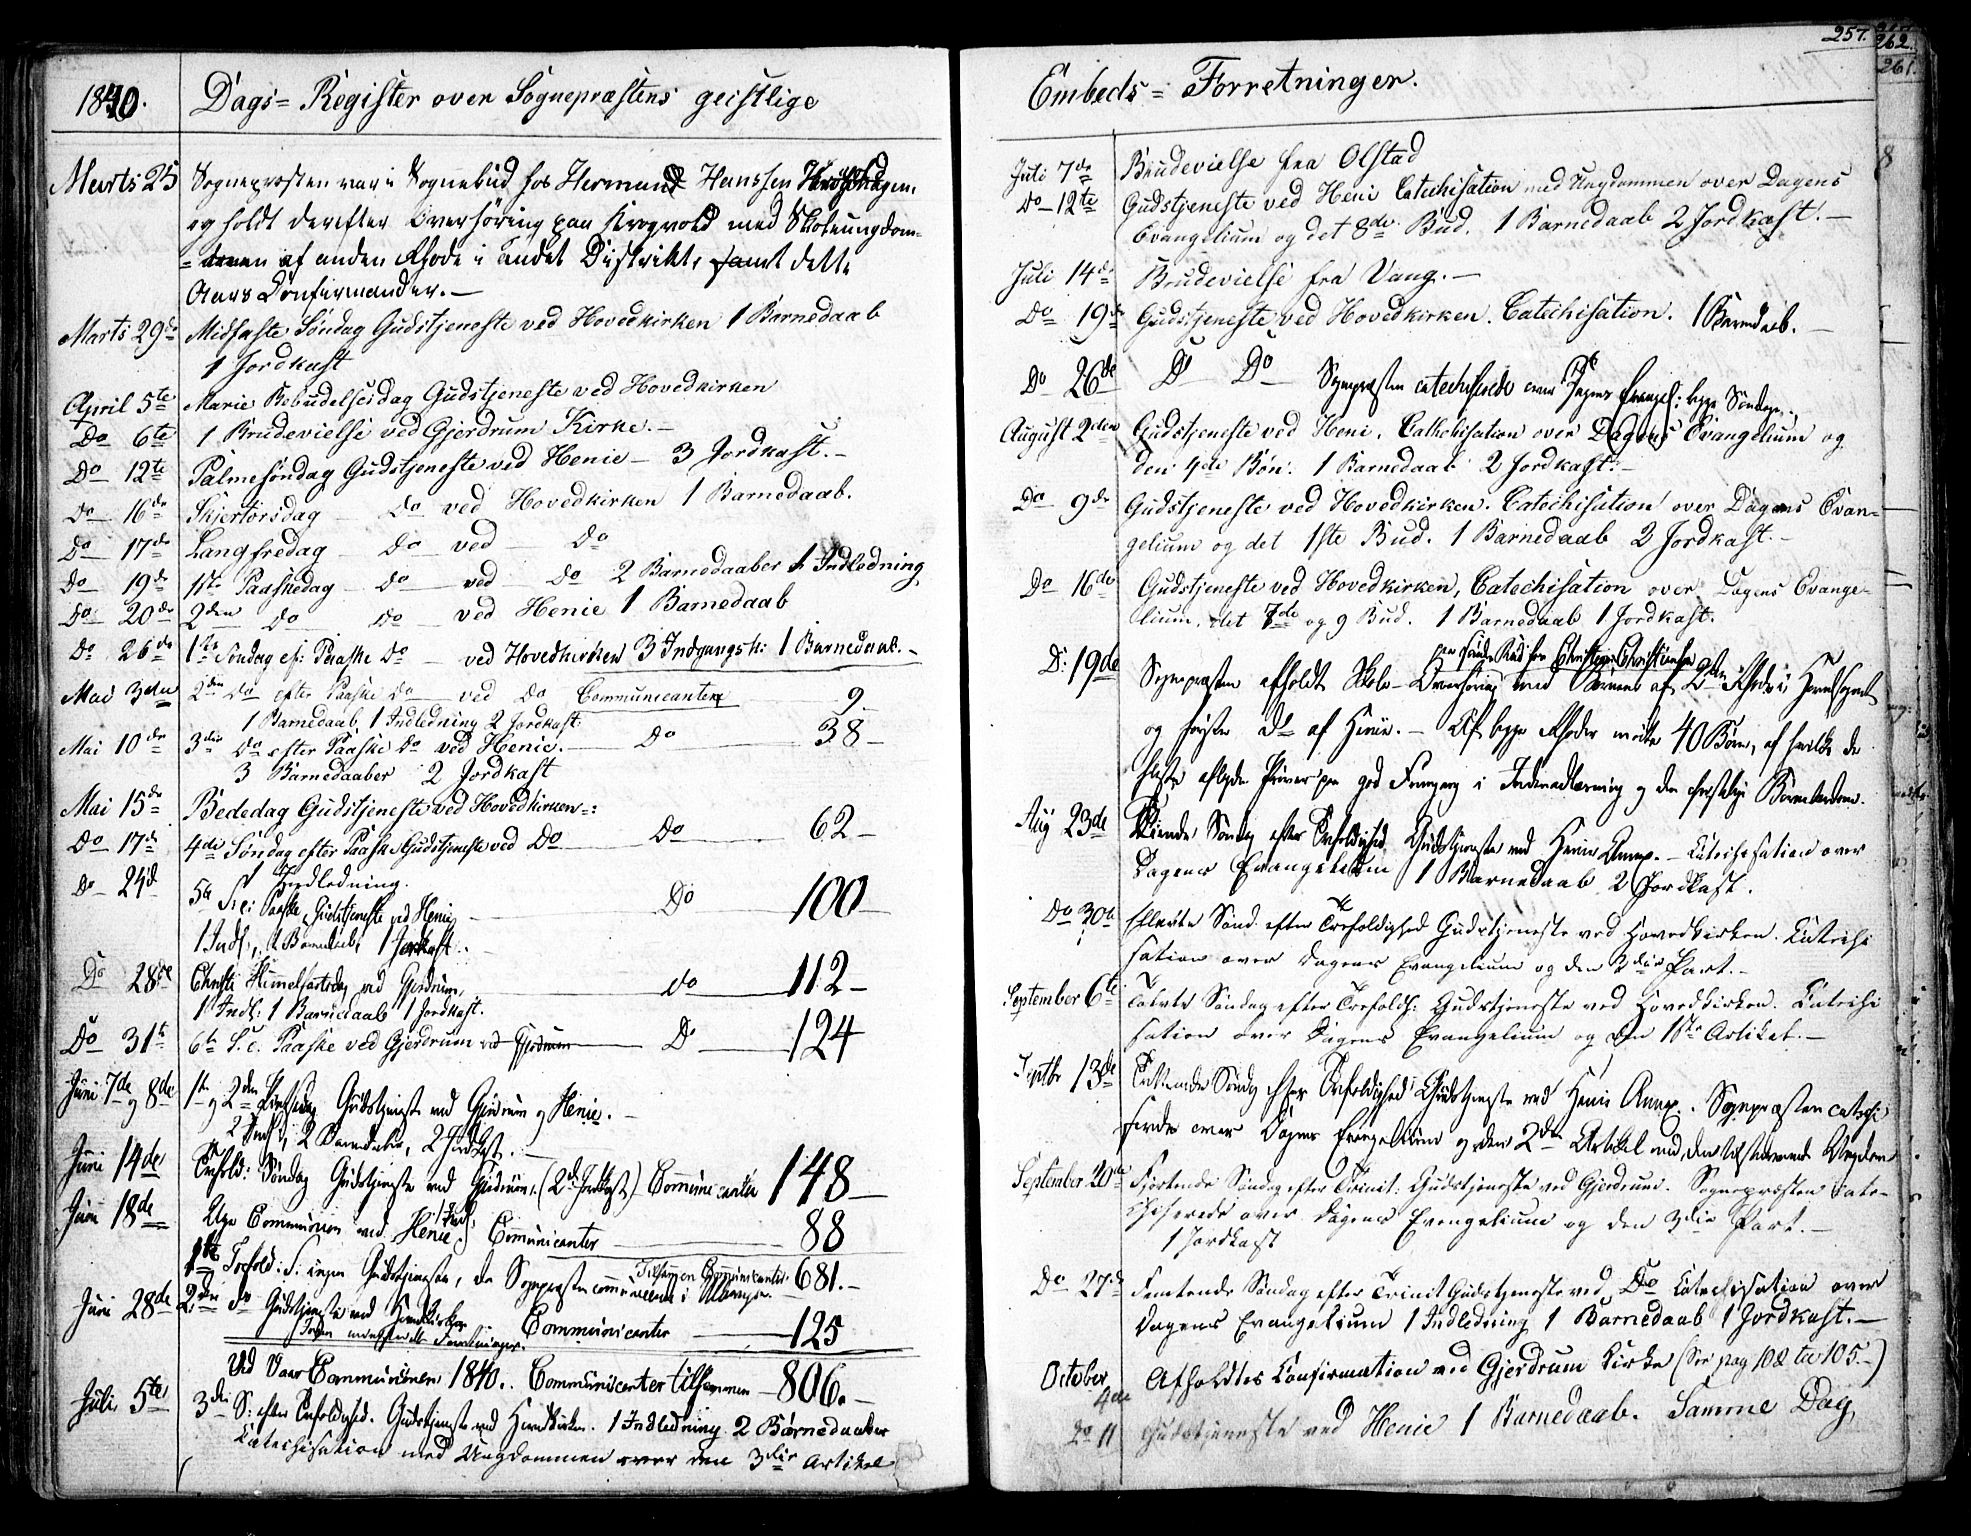 1840. Dags- Register over Sognepræstens geistlige
Marts 25 Sognepræsten var i Sognebud hos Hermand Hanssen
og holdt derefter Overhöring paa Krogvold med Skoleungdom-
af anden Rhode i andet Distrikt, samt dette
Aars Confirmander. —
Marts 29de Midfaste Söndag Gudstjeneste ved Hovedkirken 1 Barnedaab
1 Jordkast
April 5te Mariæ Bebudelsesdag Gudstjeneste ved Hovedkirken
Do 6te 1 Brudevielse ved Gjerdrum Kirke. —
Do 12te Palmesöndag Gudstjeneste ved Henie — 3 Jordkast. —
Do 16de Skjertorsdag — Do ved Hovedkirken 1 Barnedaab.
Do 17de Langfredag — Do — ved — Do
Do 19de 1ste Paaskedag — Do — ved — Do 2 Barnedaaber 1 Indledning
Do 20de 2den Do — Do — ved Henie 1 Barnedaab
Do 26de 1ste Söndag ef: Paaske Do — ved Hovedkirken 3 Indgangsk: 1 Barnedaab. —
Mai 3die 2den Do efter Paaske Do — ved Do Communicanter 9.
1 Barnedaab, 1 Indledning 2 Jordkast
Mai 10de 3die Do efter Paaske Do ved Henie. — Do — 38 —
3 Barnedaaber 2 Jordkast
Mai 15de Bededag Gudstjeneste ved Hovedkirken :
Do 17de 4de Söndag efter Paaske Gudstjeneste ved Do — Do — 62 —
1 Indledning.
Do 24de 5te S. e: Paaske, Gudstjeneste ved Henie — Do — 100 —
1 Indl:, 1 Barnedaab, 1 Jordkast.
Do 28de Christi Himmelfartsdag ved Gjerdrum, — Do — 112 —
1 Indl: 1 Barnedaab 1 Jordkast.
Do 31te 6te S. e. Paaske ved Gjerdrum ved Gjerdrum — Do — 124
Juni 7de og 8de 1ste og 2den Pintsedag Gudstjeneste ved Gjerdrum og Henie. —
2 Indl:, 2 Barnedaaber, 2 Jordkast. —
Juni 14de Trefold: Söndag Gudstjeneste ved Gjerdrum. (2de Jordkast) Communicanter 148 —
Juni 18de Uge Communion ved Henie. 1 Indl: Communicanter — 88
1ste Trefold: S: ingen Gudstjeneste, da Sognepræsten Tilsammen Communicanter 681. —
Juni 28de 2den Do Gudstjeneste ved Hovedkirken Communicanter — 125
Ved Vaar Communionen 1840. Communicanter tilsammen — 806. —
Juli 5te 3die S: efter Trefoldighed. Gudstjeneste ved Hovedkirken. 1 Indledning 2 Barnedaaber
Catechisation med Ungdommen over den 3die Artikel
257. 262.
261.
Embeds- Forretninger.
Juli 7de Brudevielse fra Olstad
Do — 12te Gudstjeneste ved Heni Catechisation med Ungdommen over Dagens
Evangelium og det 8de Bud. 1 Barnedaab 2 Jordkast. —
Juli 14de Brudevielse fra Vang. —
Do 19de Gudstjeneste ved Hovedkirken. Catechisation. 1 Barnedaab. —
Do 26de Do Do Sognepræsten catechiserede over Dagens Evangel: begge Söndage.
August 2den Gudstjeneste ved Heni. Catechisation over Dagens Evangelium og
den 4de Bön. 1 Barnedaab 2 Jordkast. —
Do 9de Gudstjeneste ved Hovedkirken. Catechisation over Dagens Evan-
gelium og det 1ste Bud. 1 Barnedaab 2 Jordkast. —
Do 16de Gudstjeneste ved Hovedkirken, Catechisation over Dagens Evange-
lium, det 7de og 9 Bud. 1 Barnedaab 1 Jordkast.
D: 19de Sognepræsten afholdt Skole-Overhöring med Börnene af 2den Rhode i Hovedsognet
og förste Do af Henie. — Af begge Rhoder mödte 40 Börn, af hvilke de
fleste aflagde Pröver paa god Fremgang i Indenadlæsning og den christelige Börnelærdom.
Aug 23de Tiende Söndag efter Trefoldighed Gudstjeneste ved Henie Annex. — Catechisation over
Dagens Evangelium 1 Barnedaab 2 Jordkast.
Do 30te Ellevte Sönd. efter Trefoldighed Gudstjeneste ved Hovedkirken. Catechi
sation over Dagens Evangelium og den 3die Part. —
September 6te Tolvte Söndag efter Trefoldh: Gudstjeneste ved Hovedkirken. Catechi
sation over Dagens Evangelium og den 1ste Artikel. —
Septbr 13de Trettende Söndag efter Trefoldighed Gudstjeneste ved Henie Annex. Sognepræsten catechi-
serede over Dagens Evangelium og den 2den Artikel med den tilstedeværende Ungdom
September 20de Fjortende Söndag efter Trinit: Gudstjeneste ved Gjerdrum. Sognepræsten cate-
chiserede over Dagens Evangelium og den 3die Part. —
1 Jordkast
Do 27de Femtende Söndag efter Trinit Gudstjeneste ved Do Catechisation over
Dagens Evangelium 1 Indledning 1 Barnedaab 1 Jordkast. —
October 4de Afholdtes Confirmation ved Gjerdrum Kirke (See pag 102 til 105 —)
Do 11 Gudstjeneste ved Henie 1 Barnedaab. Samme Dag